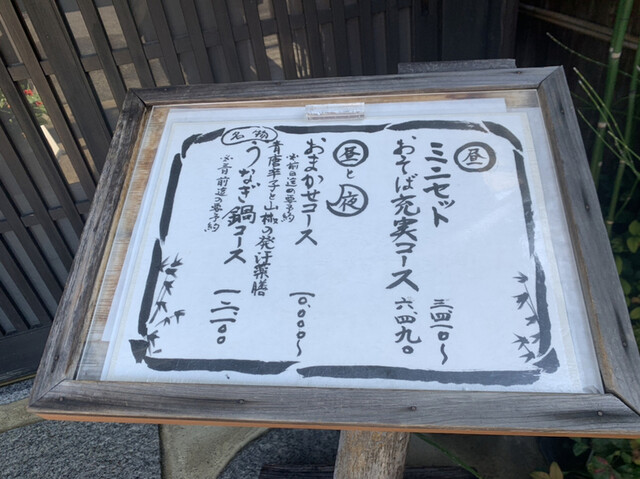 昼
ミニセット 三.四一〇〜
おそば充実コース 六.四九〇
昼と夜
おまかせコース 一〇.〇〇〇〜
※前日迄の要予約
名物
青唐辛子と山椒の発汗薬膳
うなぎ鍋コース 一二.一〇〇
※前日迄の要予約